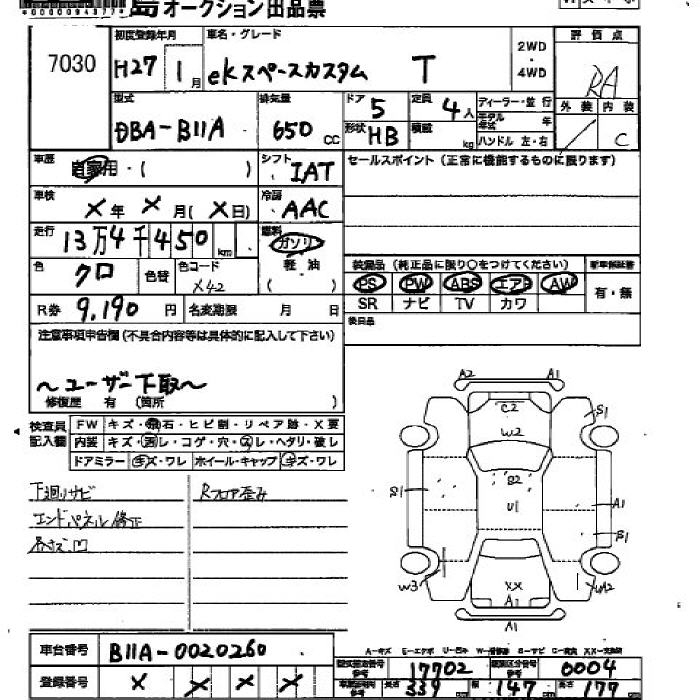 島オークション出品票
7030
初度登録年月
H27 1月
車名・グレード
eKスペースカスタム T
2WD
・
4WD
評価点
RA
外装 内装
／ C
型式
DBA-B11A
排気量
650 CC
ドア 5
形状 HB
定員 4人
積載 kg
ディーラー・並行
モデル年式 年
ハンドル 左・右
車歴
自家用・( )
シフト
IAT
セールスポイント（正常に機能するものに限ります）
車検
×年 ×月(×日)
冷房
AAC
走行
13万4千450km
燃料
ガソリン
軽・油
( )
色
クロ
色替
色コード
X42
装備品（純正品に限り○をつけてください）
新車保証書
PS PW ABS エアB AW
SR ナビ TV カワ
有・無
R券 9,190円
名変期限 月 日
後日品
注意事項申告欄（不具合内容等は具体的に記入して下さい）
～ユーザー下取～
修復歴 有 (箇所 )
検査員
記入欄
FW キズ・飛石・ヒビ割・リペア跡・X要
内装 キズ・汚レ・コゲ・穴・スレ・ヘタリ・破レ
ドアミラー キズ・ワレ ホイール・キャップ キズ・ワレ
下廻りサビ
エンドパネル修正
各キズ、凹
Rフロア歪み
A2 A1
C2
W2
S1
S2
U1
S1
A1
S1
W3
XX
A1
WA2
A1
車台番号
B11A-0020260
登録番号
× × × ×
型式指定番号
17702
類別区分番号
0004
長さ 339
幅 147
高さ 177